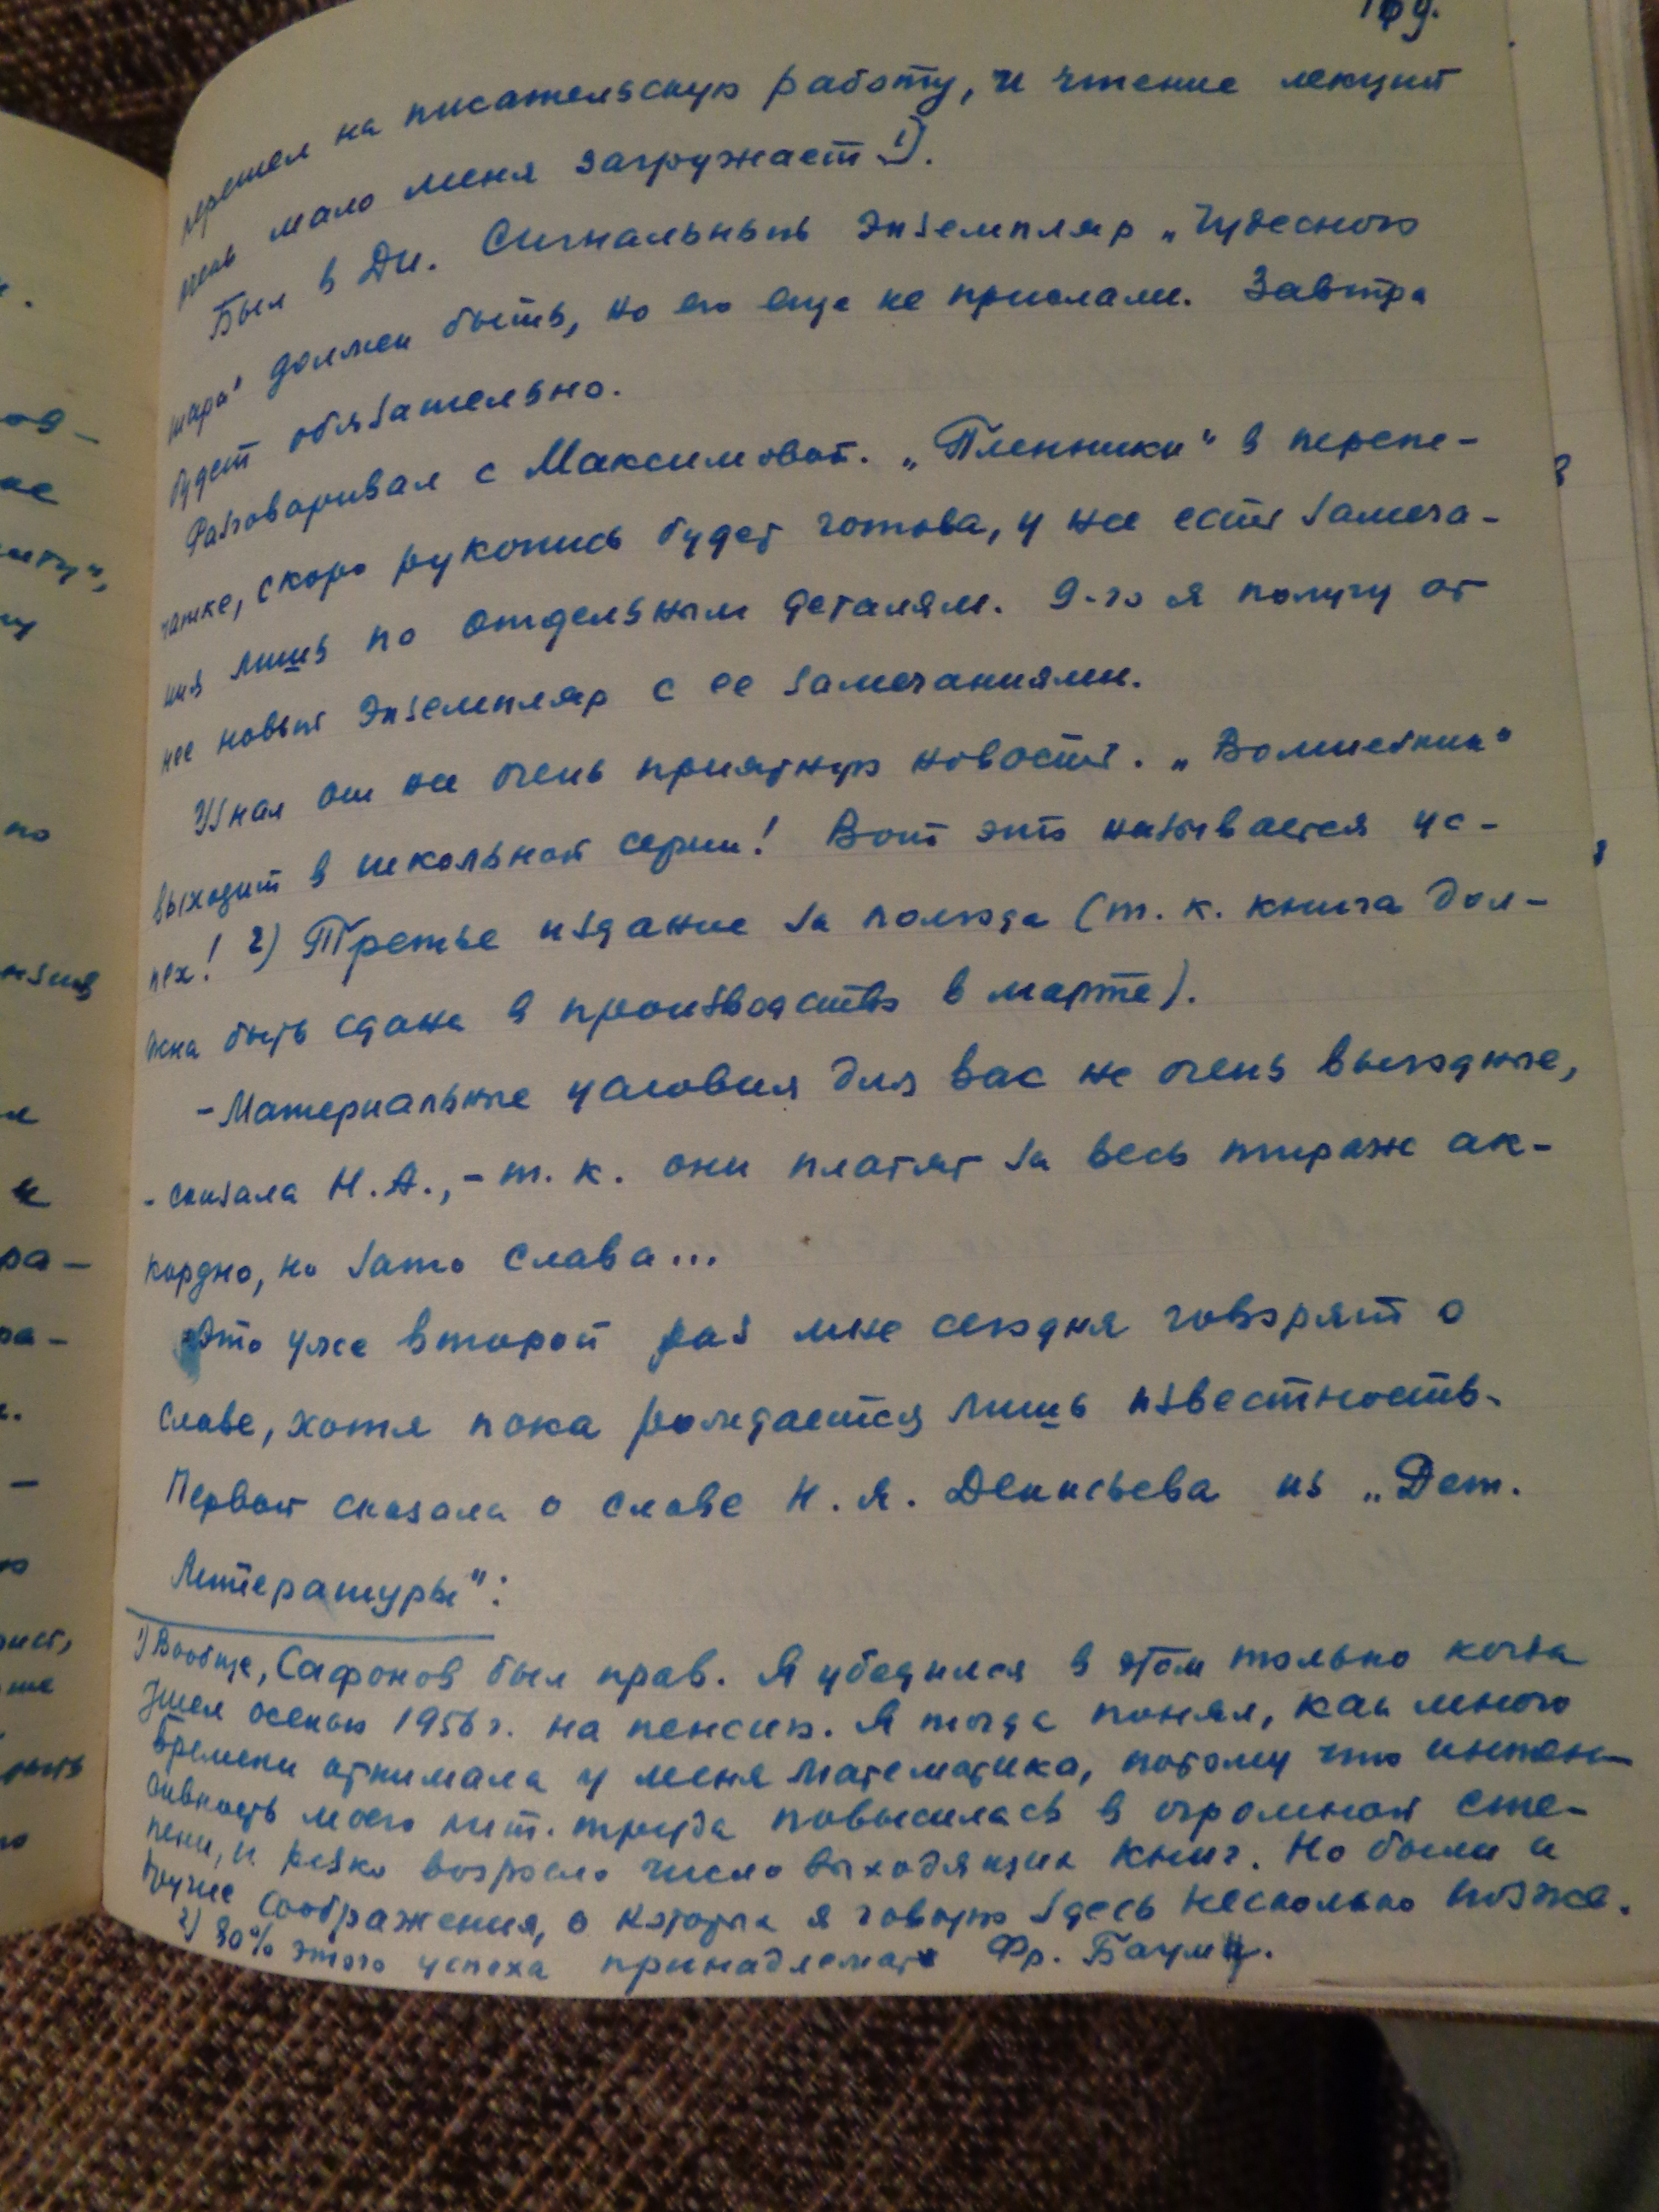 решел на писательскую работу, и чтение лекций
мало меня загружает 1).
Был в Ди. Сигнальный экземпляр „Чудесного
шара" должен быть, но его еще не прислали. Завтра
будет обязательно.
Разговаривал с Максимовой. „Пленники" в перепе-
чатке, скоро рукопись будет готова, у нее есть замеча-
ния лишь по отдельным деталям. 9-го я получу от
нее новый экземпляр с ее замечаниями.
Узнал от нее очень приятную новость. „Волшебник"
выходит в школьной серии! Вот это называется ус-
пех! 2) Третье издание за полгода (т. к. книга дол-
жна быть сдана в производство в марте).
- Материальные условия для вас не очень выгодные,
- сказала Н. А., - т. к. они платят за весь тираж ак-
кордно, но зато слава...
Это уже второй раз мне сегодня говорят о
славе, хотя пока рождается лишь известность.
Первой сказала о славе Н. Я. Денисьева из „Дет.
Литературы":
1) Вообще, Сафонов был прав. Я убедился в этом только когда
ушел осенью 1956 г. на пенсию. Я тогда понял, как много
времени отнимала у меня математика, потому что интен-
сивность моего лит. труда повысилась в огромной сте-
пени, и резко возросло число выходящих книг. Но были и
другие соображения, о которых я говорю здесь несколько позже.
2) 90% этого успеха принадлежат Фр. Бауму.